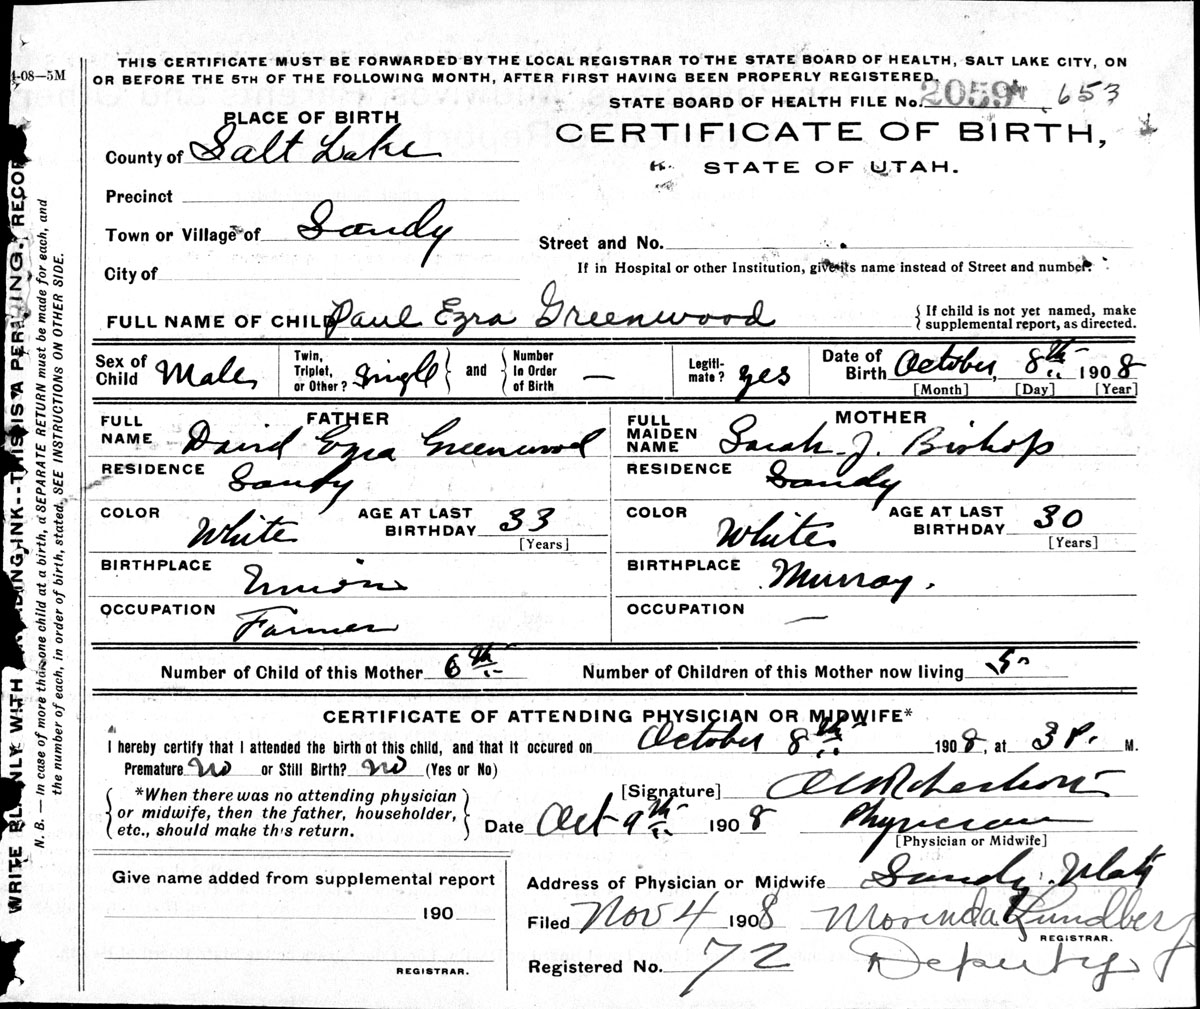 4-08—5M
THIS CERTIFICATE MUST BE FORWARDED BY THE LOCAL REGISTRAR TO THE STATE BOARD OF HEALTH, SALT LAKE CITY, ON
OR BEFORE THE 5TH OF THE FOLLOWING MONTH, AFTER FIRST HAVING BEEN PROPERLY REGISTERED.
STATE BOARD OF HEALTH FILE No. 2059 653
PLACE OF BIRTH
CERTIFICATE OF BIRTH,
County of Salt Lake
STATE OF UTAH.
Precinct
Town or Village of Sandy
Street and No.
City of
If in Hospital or other Institution, give its name instead of Street and number.
FULL NAME OF CHILD Paul Ezra Greenwood
{ If child is not yet named, make
supplemental report, as directed.
Sex of Child Male
Twin, Triplet, or Other? Single } and { Number In Order of Birth —
Legiti- mate? yes
Date of Birth October, 8th 1908
[Month] [Day] [Year]
FATHER
MOTHER
FULL NAME David Ezra Greenwood
FULL MAIDEN NAME Sarah J. Bishop
RESIDENCE Sandy
RESIDENCE Sandy
COLOR White AGE AT LAST BIRTHDAY 33 [Years]
COLOR White AGE AT LAST BIRTHDAY 30 [Years]
BIRTHPLACE Union
BIRTHPLACE Murray.
OCCUPATION Farmer
OCCUPATION —
Number of Child of this Mother 6th Number of Children of this Mother now living 5
CERTIFICATE OF ATTENDING PHYSICIAN OR MIDWIFE*
I hereby certify that I attended the birth of this child, and that it occured on October 8th 1908, at 3 P. M.
Premature No or Still Birth? No (Yes or No)
{ *When there was no attending physician
or midwife, then the father, householder,
etc., should make this return. }
[Signature] Robertson
Date Oct 9th 1908 Physician
[Physician or Midwife]
Give name added from supplemental report
Address of Physician or Midwife Sandy Utah
190
Filed Nov 4 1908 Morinda Lundberg
REGISTRAR.
Registered No. 72 Deputy
REGISTRAR.
WRITE PLAINLY WITH FADING INK--THIS IS A PERMANENT RECORD
N. B. — In case of more than one child at a birth, a SEPARATE RETURN must be made for each, and
the number of each, in order of birth, stated. SEE INSTRUCTIONS ON OTHER SIDE.